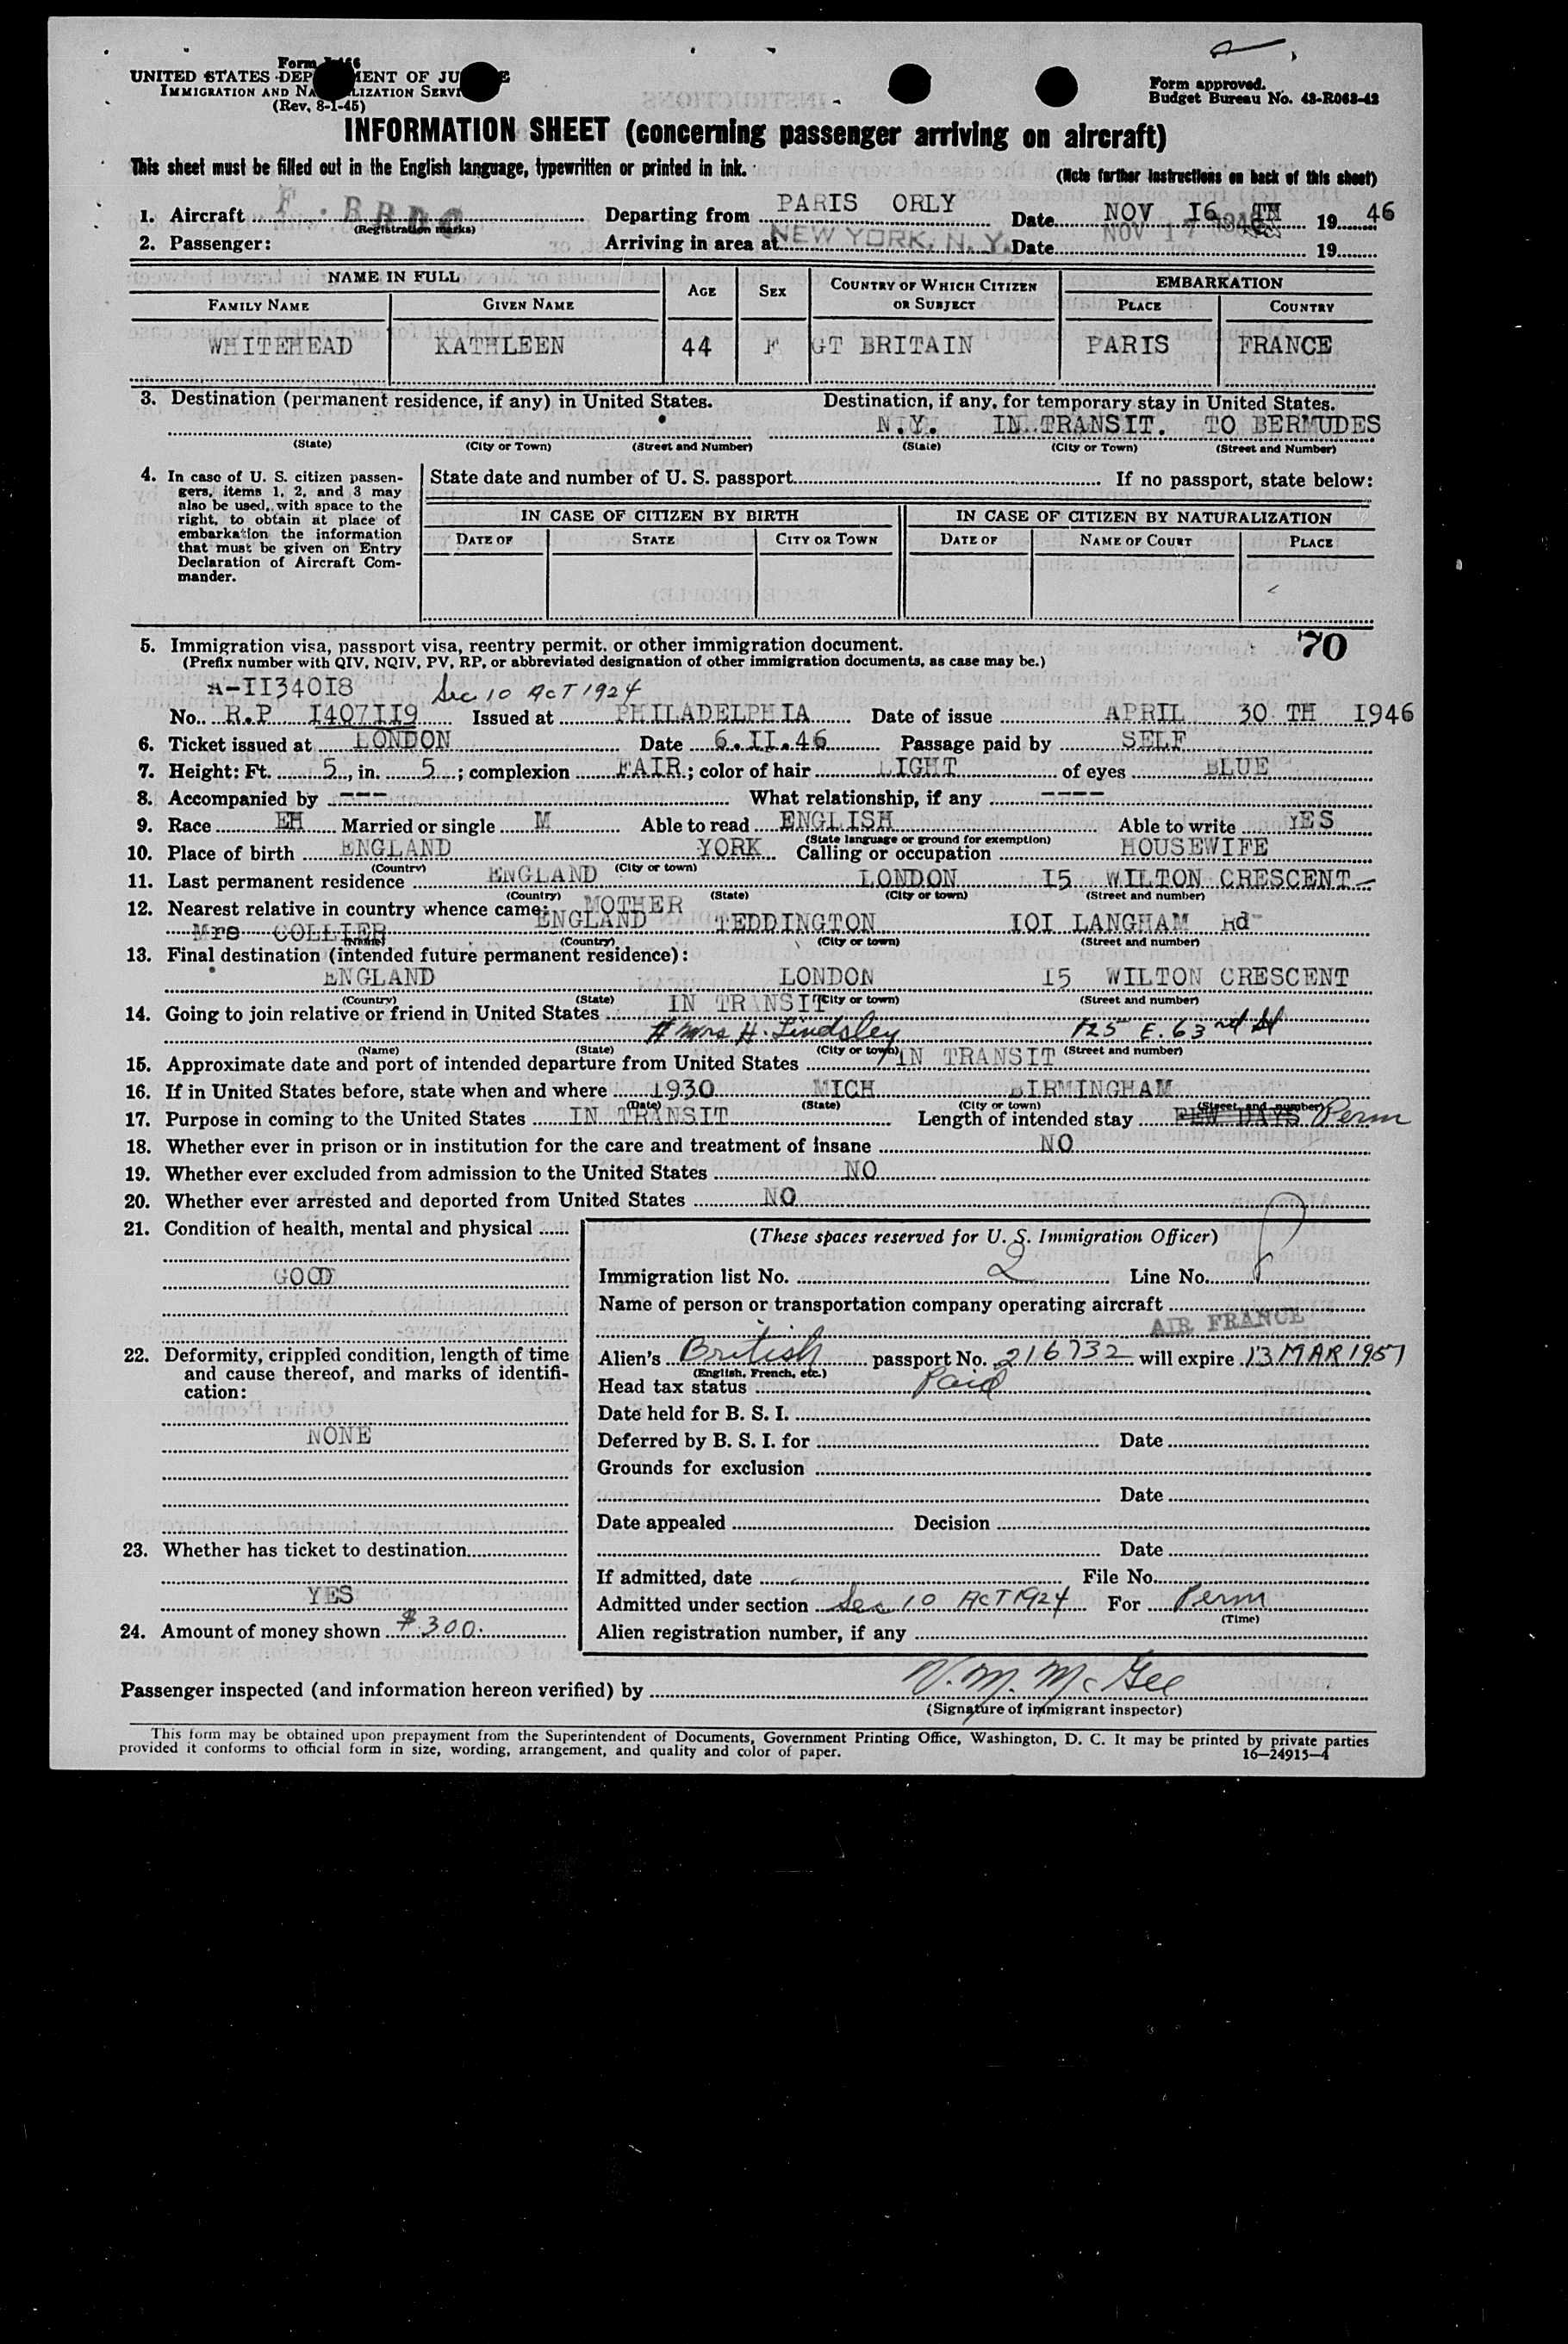 Form I-466
UNITED STATES DEPARTMENT OF JUSTICE
IMMIGRATION AND NATURALIZATION SERVICE
(Rev. 8-1-45)
Form approved.
Budget Bureau No. 43-R063-42
INFORMATION SHEET (concerning passenger arriving on aircraft)
This sheet must be filled out in the English language, typewritten or printed in ink.
(Note further instructions on back of this sheet)
1. Aircraft F. BRDC Departing from PARIS ORLY Date NOV I6 TH 1946
(Registration marks)
2. Passenger: Arriving in area at NEW YORK, N. Y. Date NOV 17 1946 19
NAME IN FULL AGE SEX COUNTRY OF WHICH CITIZEN OR SUBJECT EMBARKATION
FAMILY NAME GIVEN NAME PLACE COUNTRY
WHITEHEAD KATHLEEN 44 F GT BRITAIN PARIS FRANCE
3. Destination (permanent residence, if any) in United States. Destination, if any, for temporary stay in United States.
N.Y. IN TRANSIT. TO BERMUDES
(State) (City or Town) (Street and Number) (State) (City or Town) (Street and Number)
4. In case of U. S. citizen passengers, items 1, 2, and 3 may also be used, with space to the right, to obtain at place of embarkation the information that must be given on Entry Declaration of Aircraft Commander.
State date and number of U. S. passport If no passport, state below:
IN CASE OF CITIZEN BY BIRTH IN CASE OF CITIZEN BY NATURALIZATION
DATE OF STATE CITY OR TOWN DATE OF NAME OF COURT PLACE
70
5. Immigration visa, passport visa, reentry permit, or other immigration document.
(Prefix number with QIV, NQIV, PV, RP, or abbreviated designation of other immigration documents, as case may be.)
A-II340I8 Sec 10 ACT 1924
No. R.P I407II9 Issued at PHILADELPHIA Date of issue APRIL 30 TH I946
6. Ticket issued at LONDON Date 6.II.46 Passage paid by SELF
7. Height: Ft. 5, in. 5; complexion FAIR; color of hair LIGHT of eyes BLUE
8. Accompanied by --- What relationship, if any ----
9. Race EH Married or single M Able to read ENGLISH Able to write YES
(State language or ground for exemption)
10. Place of birth ENGLAND YORK Calling or occupation HOUSEWIFE
(Country) (City or town)
11. Last permanent residence ENGLAND LONDON I5 WILTON CRESCENT
(Country) (State) (City or town) (Street and number)
12. Nearest relative in country whence came: MOTHER
Mrs COLLIER ENGLAND TEDDINGTON IOI LANGHAM Rd
(Name) (Country) (City or town) (Street and number)
13. Final destination (intended future permanent residence):
ENGLAND LONDON I5 WILTON CRESCENT
(Country) (State) (City or town) (Street and number)
14. Going to join relative or friend in United States IN TRANSIT
Mrs H. Lindsley 125 E. 63rd St
(Name) (State) (City or town) (Street and number)
15. Approximate date and port of intended departure from United States IN TRANSIT
16. If in United States before, state when and where 1930 MICH BIRMINGHAM
(Date) (State) (City or town) (Street and number)
17. Purpose in coming to the United States IN TRANSIT Length of intended stay FEW DAYS Perm
18. Whether ever in prison or in institution for the care and treatment of insane NO
19. Whether ever excluded from admission to the United States NO
20. Whether ever arrested and deported from United States NO
21. Condition of health, mental and physical
GOOD
22. Deformity, crippled condition, length of time and cause thereof, and marks of identification:
NONE
23. Whether has ticket to destination
YES
24. Amount of money shown $300.
(These spaces reserved for U. S. Immigration Officer)
Immigration list No. 2 Line No.
Name of person or transportation company operating aircraft
AIR FRANCE
Alien's British passport No. 216732 will expire 13 MAR 1951
(English, French, etc.)
Head tax status Paid
Date held for B. S. I.
Deferred by B. S. I. for Date
Grounds for exclusion
Date
Date appealed Decision
Date
If admitted, date File No.
Admitted under section Sec 10 ACT 1924 For Perm
(Time)
Alien registration number, if any
Passenger inspected (and information hereon verified) by V. M. McGee
(Signature of immigrant inspector)
This form may be obtained upon prepayment from the Superintendent of Documents, Government Printing Office, Washington, D. C. It may be printed by private parties
provided it conforms to official form in size, wording, arrangement, and quality and color of paper. 16—24915-4